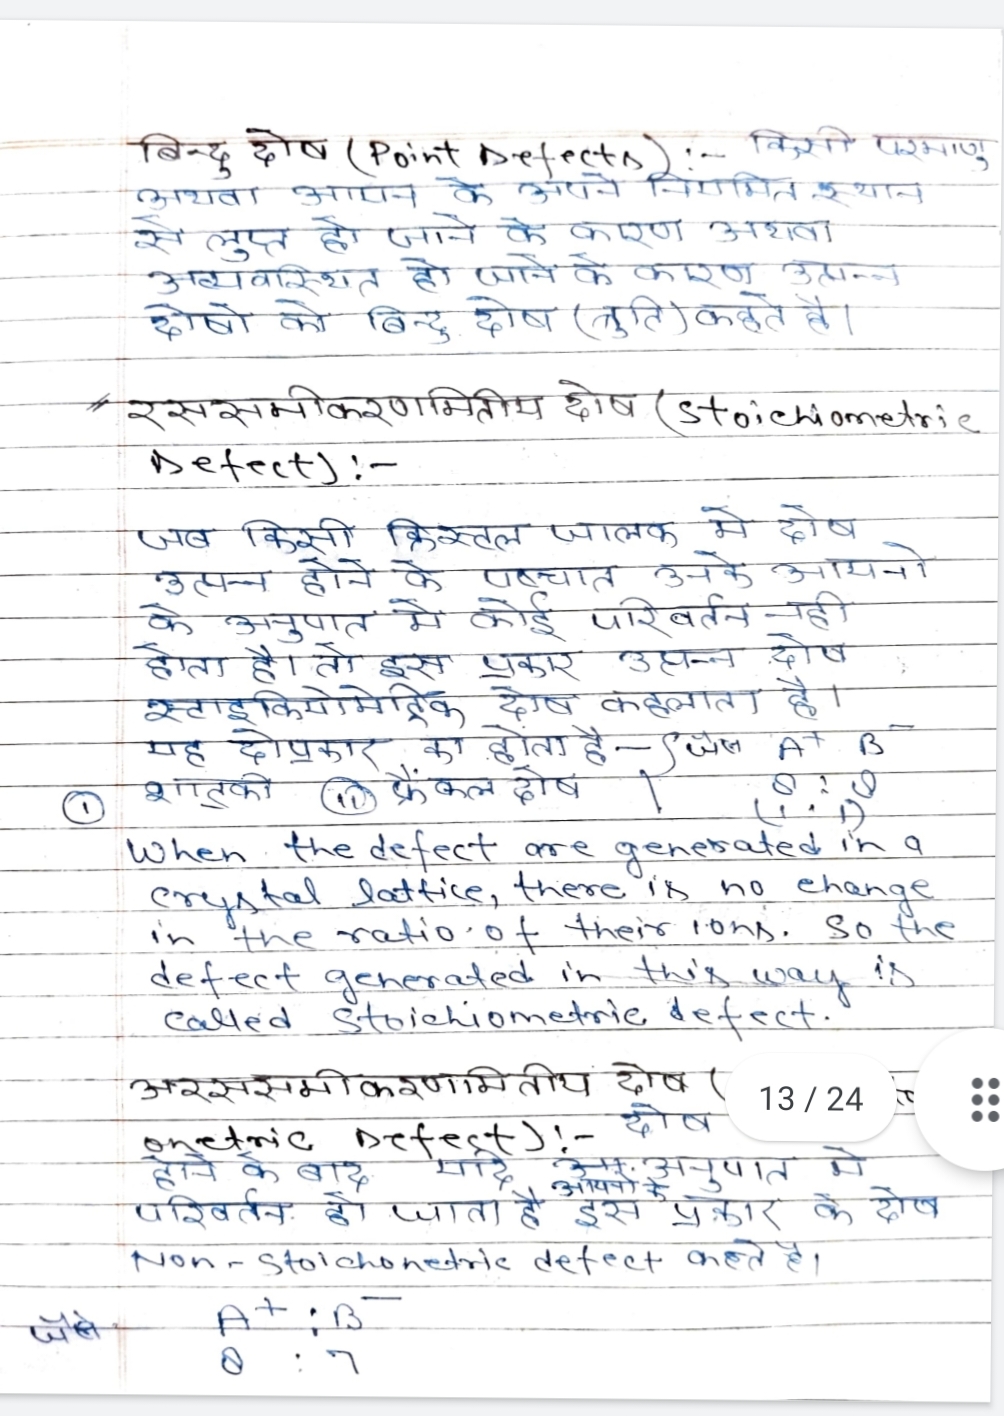 बिन्दु दोष (Point Defects) :- किसी परमाणु
अथवा आयन के अपने नियमित स्थान
से लुप्त हो जाने के कारण अथवा
अव्यवास्थित हो जाने के कारण उत्पन्न
दोषो को बिन्दु दोष (त्रुति) कहते है।
रससमीकरणमितीय दोष (Stoichiometric
Defect) :-
जब किसी क्रिस्टल जालक मे दोष
उत्पन्न होने के पश्चात उनके आयनो
के अनुपात मे कोई परिवर्तन नही
होता है। तो इस प्रकार उत्पन्न दोष
स्टाइकियोमेट्रिक दोष कहलाता है।
यह दोप्रकार का होता है- जैसे A+ B-
① शाट्की (ii) फ्रैंकल दोष 8 : 8
(1 : 1)
When the defect are generated in a
crystal lattice, there is no change
in the ratio of their ions. So the
defect generated in this way is
called Stoichiometric defect.
अरससमीकरणमितीय दोष (
13 / 24
ometric Defect) :- दोष
होने के बाद यदि आयनो के अनुपात मे
परिवर्तन हो जाता है इस प्रकार के दोष
Non-Stoichonetric defect कहते है।
जैसे A+ : B-
8 : 7